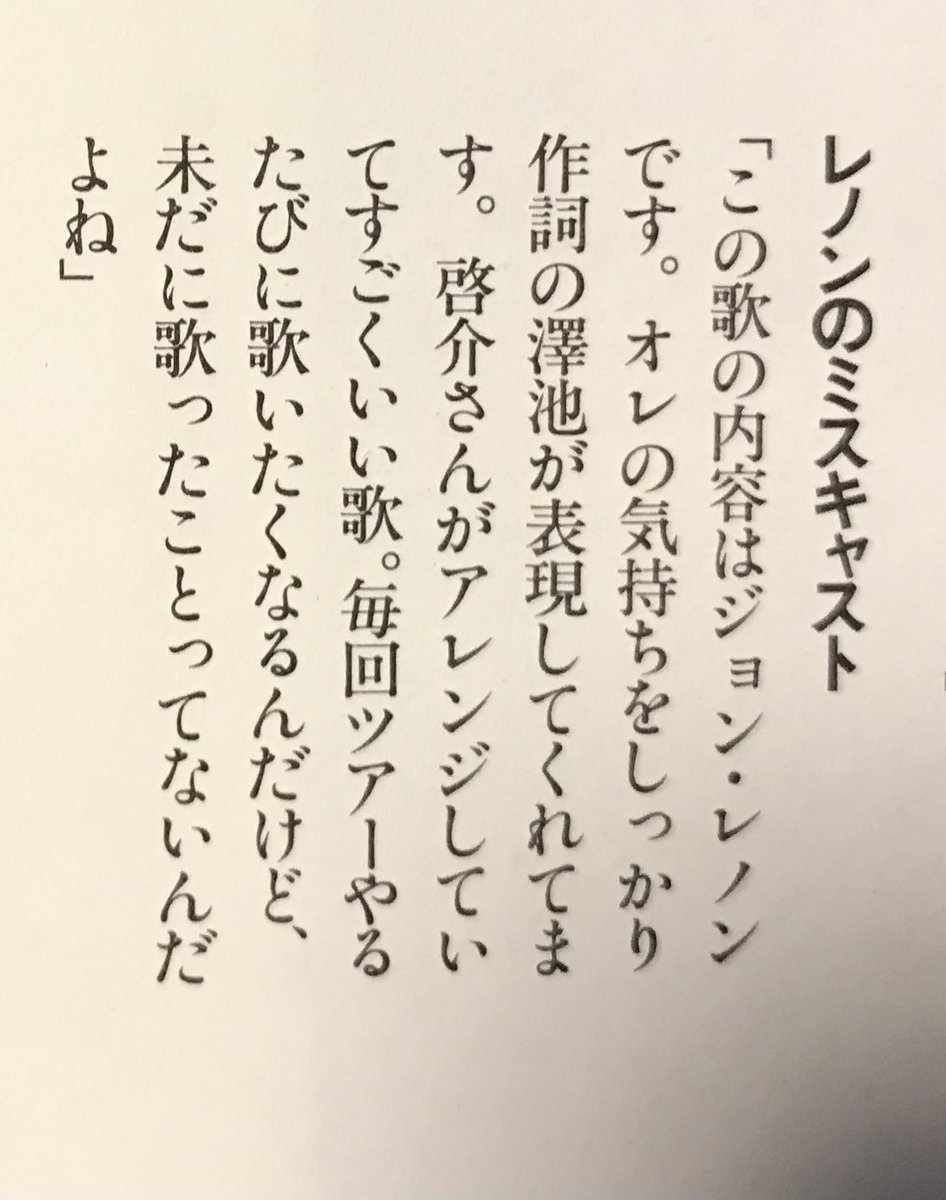 レノンのミスキャスト
「この歌の内容はジョン・レノン
です。オレの気持ちをしっかり
作詞の澤池が表現してくれてま
す。啓介さんがアレンジしてい
てすごくいい歌。毎回ツアーやる
たびに歌いたくなるんだけど、
未だに歌ったことってないんだ
よね」